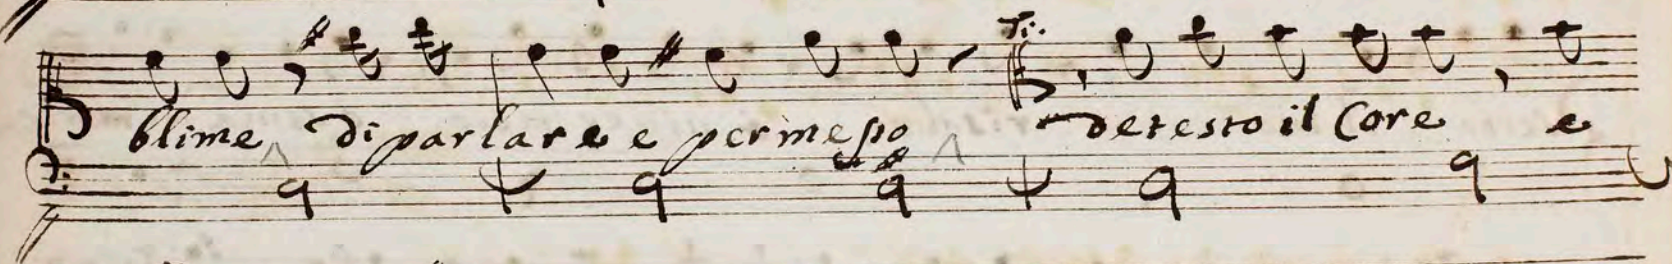 Ti:
blime di parlare e permesso detesto il Core e